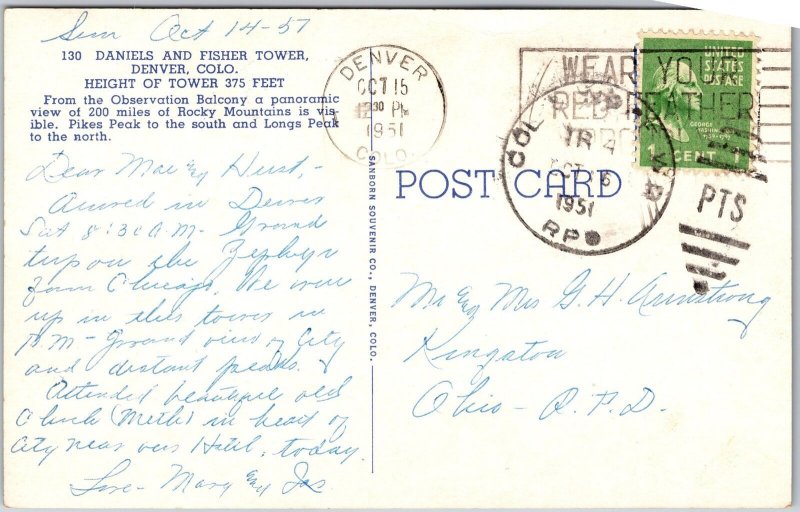 Sun Oct 14-51
130 DANIELS AND FISHER TOWER,
DENVER, COLO.
HEIGHT OF TOWER 375 FEET
From the Observation Balcony a panoramic
view of 200 miles of Rocky Mountains is vis-
ible. Pikes Peak to the south and Longs Peak
to the north.
Dear Mae and Hurst,-
Arrived in Denver
Sat 8:30 A.M- Grand
trip on the Zephyr
from Chicago. We were
up in this tower in
P.M- Grand view of City
and distant peaks.
Attended beautiful old
Church (Meth) in heart of
City near our Hotel, today.
Love- Mary and Jas
SANBORN SOUVENIR CO., DENVER, COLO.
DENVER
OCT 15
12 30 PM
1951
COLO.
WEAR YOUR
RED FEATHER
UNITED
STATES
POSTAGE
GEORGE
WASHINGTON
1 CENT 1
TR 4
OCT 15
1951
RPO
PTS
POST CARD
Mr and Mrs G. H. Armstrong
Kingston
Ohio- R.F.D.